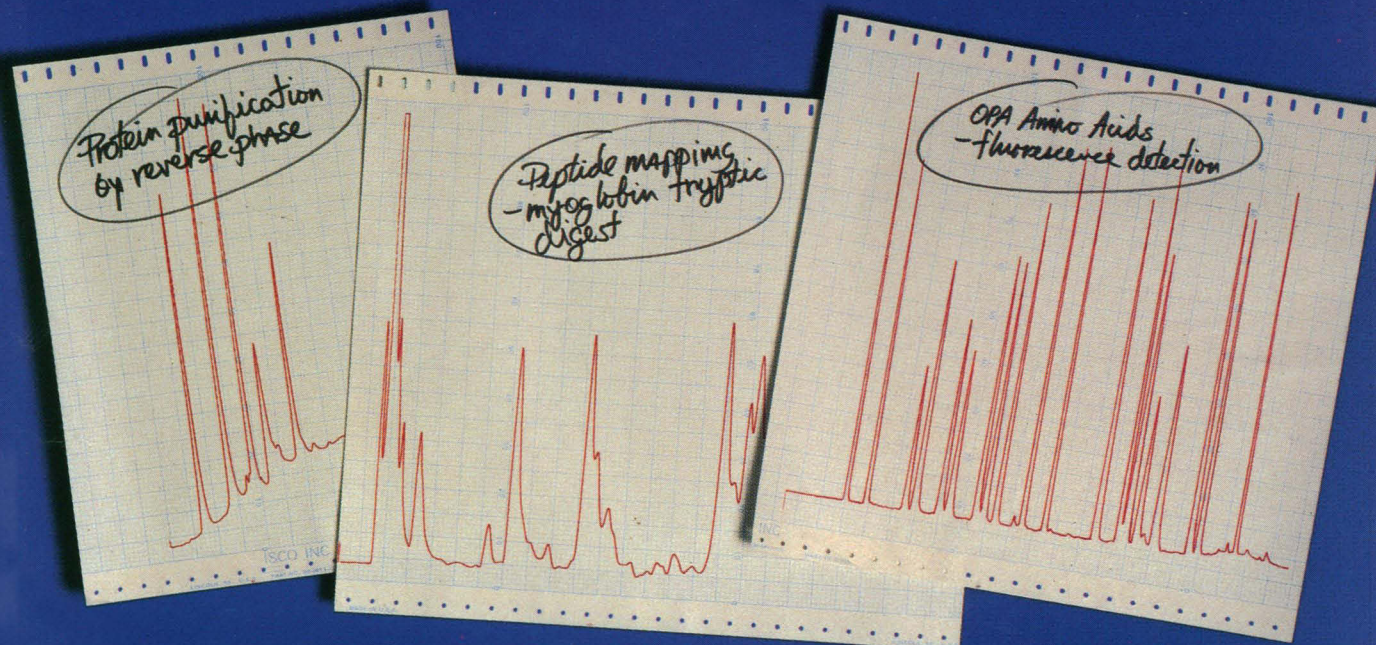 Protein purification
by reverse phase
ISCO INC
Peptide mapping
-myoglobin tryptic
digest
OPA Amino Acids
-fluorescence detection
INC